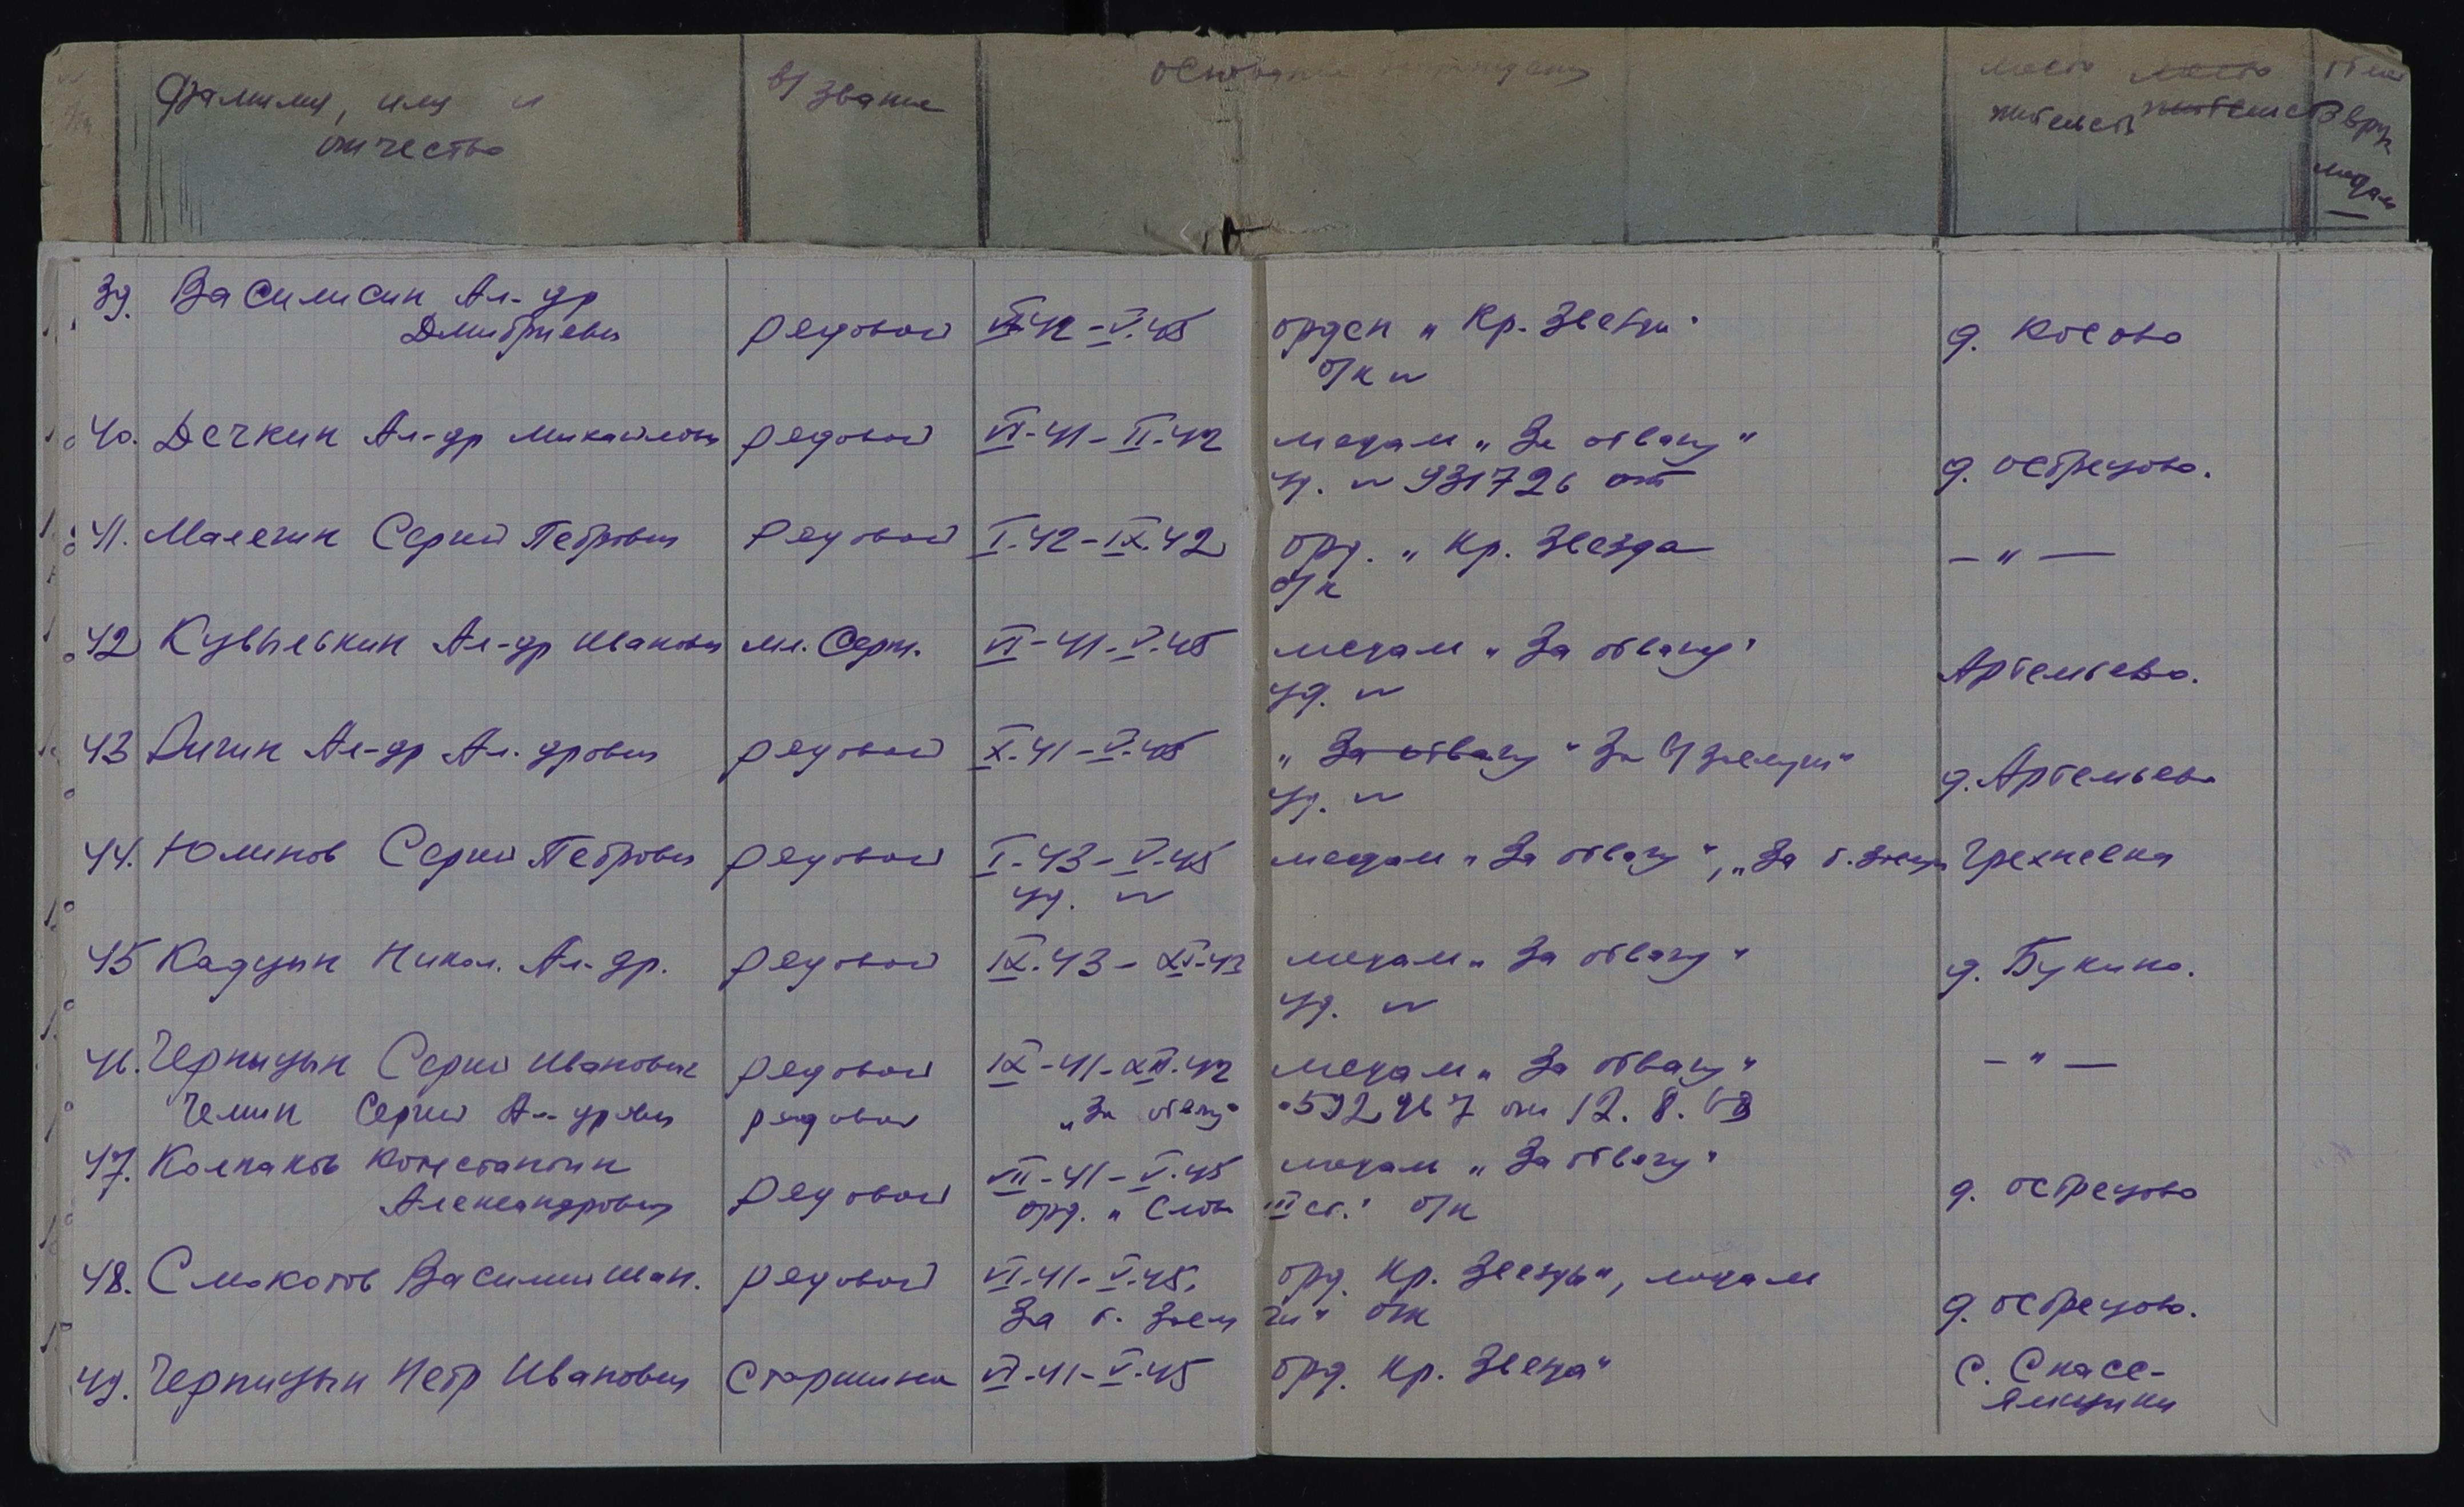 Фамилия, имя и
отчество
в/звание
основание награждения
место
жительств
вруч
медал
39. Василисин Ал-др
Дмитриевич рядовой 42-V.45 орден „Кр. Звезды" д. Косово
б/к №
40. Дечкин Ал-др Михайлович рядовой VI-41-II-42 медаль „За отвагу" д. Острецово.
уд. № 931726 от
41. Малягин Сергей Петрович рядовой I.42-IX.42 орд. „Кр. Звезда — " —
б/к
42 Кувылькин Ал-др Иванович мл. Серж. VI-41-V.45 медаль „За отвагу" Артемьево.
уд. №
43 Дигин Ал-др Ал-дрович рядовой X.41-V.45 „За отвагу" За б/заслуги" д. Артемьево
уд. №
44. Юлинов Сергей Петрович рядовой I-43-V.45 медаль „За отвагу", „За б. заслуги Грехневка
уд. №
45 Кадцын Никол. Ал-др. рядовой IX.43-XI-43 медаль „За отвагу" д. Букино.
уд. №
46. Черницын Сергей Иванович рядовой IX-41-XII.42 медаль „За отвагу" — " —
Чемин Сергей Ал-дрович рядовой „За отвагу" 592967 от 12.8.
47. Колпаков Константин VII-41-V.45 медаль „За отвагу"
Александрович рядовой орд. „Славы III ст." б/к д. Острецово
48. Смокотов Василий Иван. рядовой VI.41-V.45. орд. Кр. Звезды", медаль
За б. заслуги" б/к д. Острецово.
49. Черницын Петр Иванович Старшина VI-41-V.45 орд. Кр. Звезда" С. Спасс-
Ямщики